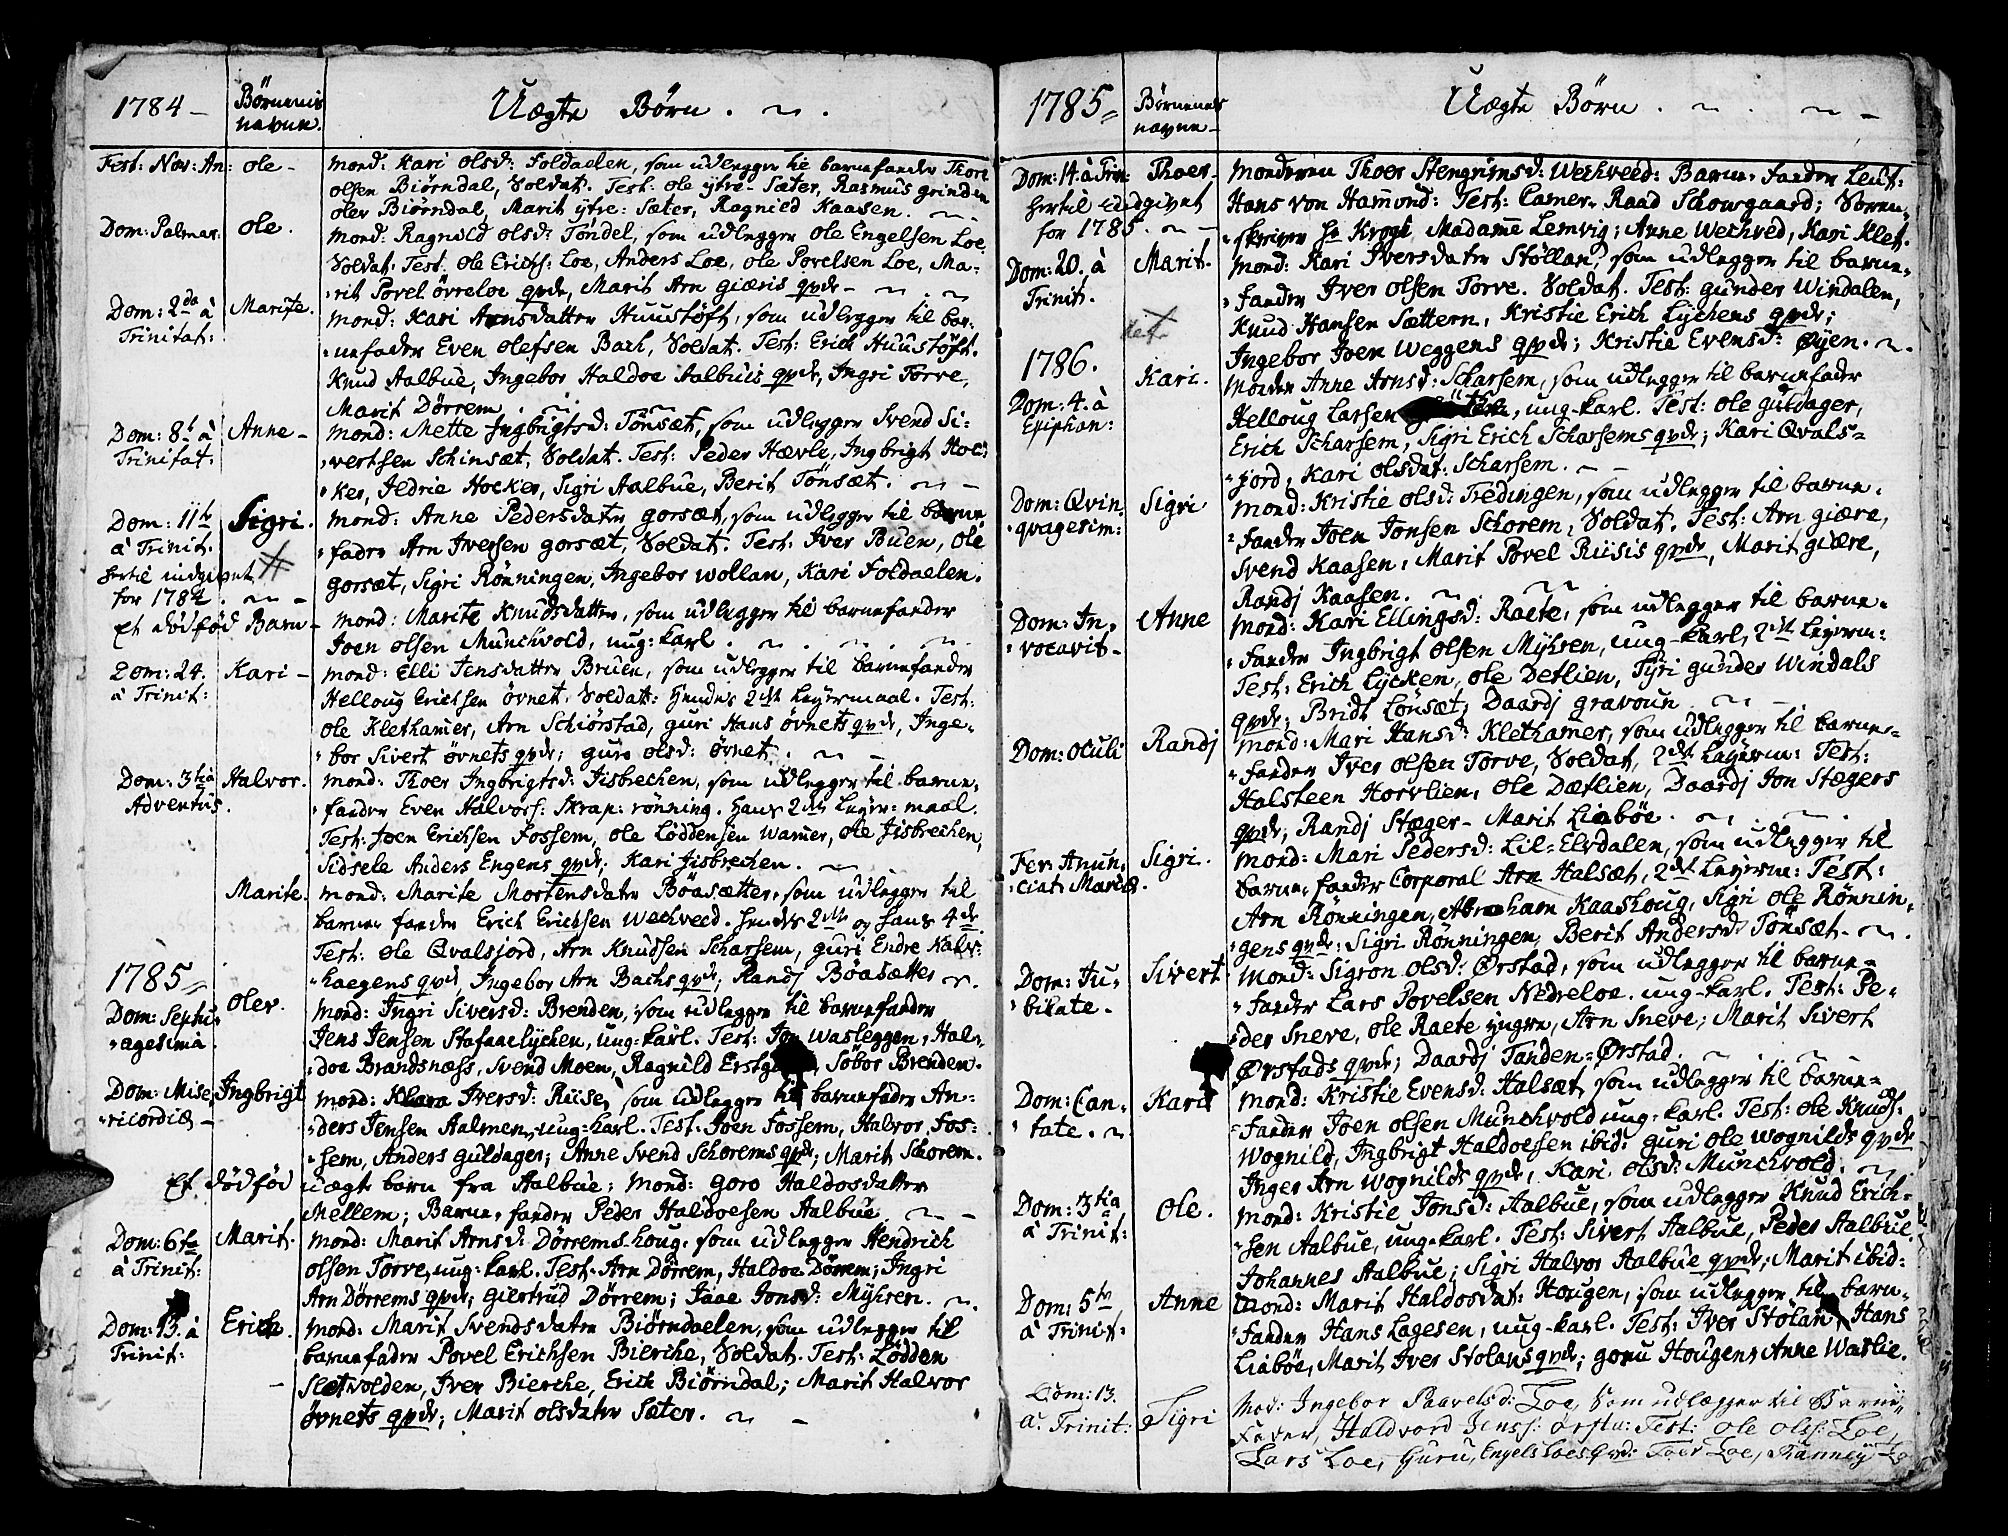 1784 – Børnenes navne. Uægte Børn . ~ .
Fest: Nov: An: Ole – Mod: Kari Olsd: Foldaelen, som udlegger til barnefader Thore
Olsen Biørndal, Soldat. Test: Ole ytre-Sæter, Rasmus grinden
Oler Biørndal, Marit ytre: Sæter, Ragnild Kaasen. ~
Dom: Palmar. Ole. Mod: Ragnild Olsd: Tøndel, som udlegger Ole Engelsen Loe.
Soldat. Test. Ole Erichs: Loe, Anders Loe, Ole Povelsen Loe, Ma-
rit Povel øvreloe qvdr, Marit Arn giæris qvdr – ~ . ~
Dom: 2da à Trinitat: Marite. Mod: Kari Arnsdatter Huustøft, som udlegger til bar-
nefader Even Olefsen Bach, Soldat. Test: Erich Huustøft.
Knud Aalbue, Ingebor Haldoe Aalbuis qvdr, Ingri Torve,
Marit Dørrem . ~ .
Dom: 8de à Trinitat: Anne – Mod: Mette Ingbrigtsd: Tønsæt, som udlegger Svend Si-
vertsen Schinsæt, Soldat. Test: Peder Hævle, Ingbrigt Hoc-
ker, Ildrie Hocker, Sigri Aalbue, Berit Tønsæt. ~ –
Dom: 11te à Trinit. Sigri. Mod: Anne Pedersdater gorsæt, som udlegger til barne
fader Arn Iversen gorsæt, Soldat. Test: Iver Buen, Ole
gorsæt, Sigri Rønningen, Ingebor Wollan, Kari Foldaelen.
hertil indgivet for 1784 . ~ –
Et dødfød Barn – Mod: Marite Knudsdatter, som udlegger til barnefader
Joen Olsen Munchvold, ung: karl . ~ . ~ . ~
Dom: 24. à Trinit: Kari – Mod: Elli Jensdatter Bruen, som udlegger til barnefader
Helloug Erichsen øvnet, Soldat: hendes 2det Leyermaal. Test:
Ole Klethamer, Arn Schiørstad, guri Hans øvnets qvdr, Inge-
bor Sivert øvnets qvdr; guro Olsd: øvnet. ~ –
Dom: 3tia Adventus. Halvor. Mod: Thoer Ingbrigtsd: Jisbrechen, som udlegger til barne-
fader Even Halvors: Skrap: rønning. hans 2det Leyer: maal.
Test: Joen Erichsen Fossem, Ole Løddensen Wammer, Ole Jisbrechen,
Sidsele Anders Engens qvdr; Kari Jisbrechen. ~
Marite. Mod: Marite Mortensdater Bøasætter, som udlegger til
barne fader Erich Erichsen Wechveed. hendes 2det og hans 4de.
Test: Ole Qvalsjord, Arn Knudsen Scharsem, guri Endre Kalv-
haegens qvdr, Ingebor Arn Bachs qvdr, Randj Bøasætter ~.
1785 ,,
Dom: Septu-agesima. Oler. Mod: Ingri Siversd: Brenden, som udlegger til barnefader
Jens Jensen Stafaaelychen, ung: karl. Test: Wasleggen, Hal-
doe Brandsnæss, Svend Moen, Ragnild , Sobor Brenden.
Dom: Mise-ricordiæ – Ingbrigt Mod: Klara Iversd: Riise, som udlegger til barnefader An-
ders Jensen Aalmen, ung: karl. Test: Joen Fossem, Halvor Fos-
sem, Anders Guldager; Anne Svend Schorems qvdr; Marit Schorem.
Et dødfød uægte barn fra Aalbue; Mod: goro Haldosdatter
Mellem; Barne-fader Peder Haldoesen Aalbue. ~ –
Dom: 6te à Trinit: Marit. Mod: Marit Arnsd: Dørremshoug, som udlegger Hendrich
Olsen Torve, ung: karl. Test. Arn Dørrem, Haldoe Dørrem; Ingri
Arn Dørrems qvdr; giertrud Dørrem; Jaae Jonsd: Myhren. ~.
Dom: 13. à Trinit: Erich. Mod: Marit Svendsdater Biørndaelen, som udlegger til
barnefader Povel Erichsen Bierche, Soldat. Test: Lødden
Sletvolden, Iver Bierche, Erich Biørndal; Marit Halvor
øvnets qvdr; Marit Olsdater Sæter. ~ –
1785 ,, Børnenes navne – Uægte Børn . ~ . ~ –
Dom: 14. à Trin: Thoer – Moderen Thoer Stengrimsd: Wechveed: Barne-fader Leut:
hertil indgivet for 1785. ~ – Hans von Hamond: Test: Camer-Raad Schowgaard; Soren-
skriver Hr Krogt, Madame Lemvig; Anne Wechved, Kari Klet.
Dom: 20. à Trinit. Marit. Mod: Kari Iversdater Støllan, som udlegger til barne-
fader Iver Olsen Torve. Soldat. Test: gunder Windalen,
Knud Hansen Sættern, Kristie Erich Lychens qvdr;
Ingebor Joen Weggens qvdr; Kristie Evensd: Øyen. ~.
1786.
Dom: 4. à Epiphan: Kari. Moder Anne Arnsd: Scharsem, som udlegger til barnefader
Helloug Larsen , ung-karl. Test: Ole guldager,
Erich Scharsem, Sigri Erich Scharsems qvdr; Kari Qvals-
jord, Kari Olsdat: Scharsem. – ~
Dom: Qvin-qvagesim: Sigri Mod: Kristie Olsd: Tredingen, som udlegger til barne-
fader Joen Jonsen Schorem, Soldat. Test: Arn giære,
Svend Kaasen, Marit Povel Riisis qvdr, Marit giære,
Randj Kaasen. ~ ~
Dom: In-vocavit – Anne Mod: Kari Ellingsd: Raete, som udlegger til barne-
fader Ingbrigt Olsen Myhren, ung-karl, 2det Leyerm:
Test: Erich Lycken, Ole Detlien, Tyri gunder Windals
qvdr; Bridt Lønsæt, Daardj gravoun. ~ –
Dom: Oculi Randj Mod: Mari Hansd: Klethamer, som udlegger til barne-
fader Iver Olsen Torve, Soldat, 2det Leyerm: Test:
Halsteen Horvlien, Ole Dætlien, Daardj Jon Stægers
qvdr; Randj Stæger – Marit Liabøe. ~ .
Fer: Anun-ciat: Mariæ. Sigri. Mod: Mari Pedersd: Lil-Elvdalen, som udlegger til
barne-fader Corporal Arn Halsæt, 2det Leyerm: Test:
Arn Rønningen, Abraham Kaashoug, Sigri Ole Rønnin-
gens qvdr; Sigri Rønningen, Berit Andersd: Tønsæt. ~ .
Dom: Ju-bilate. Sivert Mod: Sigron Olsd: Ørstad, som udlegger til barne-
fader Lars Povelsen Nedreloe. ung-karl. Test: Pe-
der Sneve, Ole Raete yngre, Arn Sneve; Marit Sivert
Ørstads qvdr; Daardj Tanden-Ørstad. ~ . ~
Dom: Can-tate. ~ Kari Mod: Kristie Evensd: Halsæt, som udlegger til barne-
fader Joen Olsen Munchvold ung: karl: Test: Ole Knuds:
Wognild, Ingbrigt Haldoesen ibid: guri Ole Wognilds qvdr
Inger Arn Wognilds qvdr, Kari Olsd: Munchvold. ~
Dom: 3tia à Trinit: Ole. Mod: Kristie Jonsd: Aalbue, som udlegger Knud Erich-
sen Aalbue, ung-karl. Test: Sivert Aalbue, Peder Aalbue,
Johannes Aalbue; Sigri Halvor Aalbue qvdr, Marit ibid:
Dom: 5te à Trinit: Anne Mod: Marit Haldosdat: Hougen, som udlegger til barne-
fader Hans Lagesen, ung-karl. Test: Iver Stølan, Hans
Liabøe, Marit Iver Stolans qvdr; goru Hougen, Anne Waslie.
Dom: 13. à Trinit: Sigri Mod: Ingebor Paavelsd: Loe, Som udlægger til Barne-
Fader, Haldvord Jenss: ørsta: Test: Ole Ols: Loe,
Lars Loe, Guru, Engels Loes Qvd: Loe,